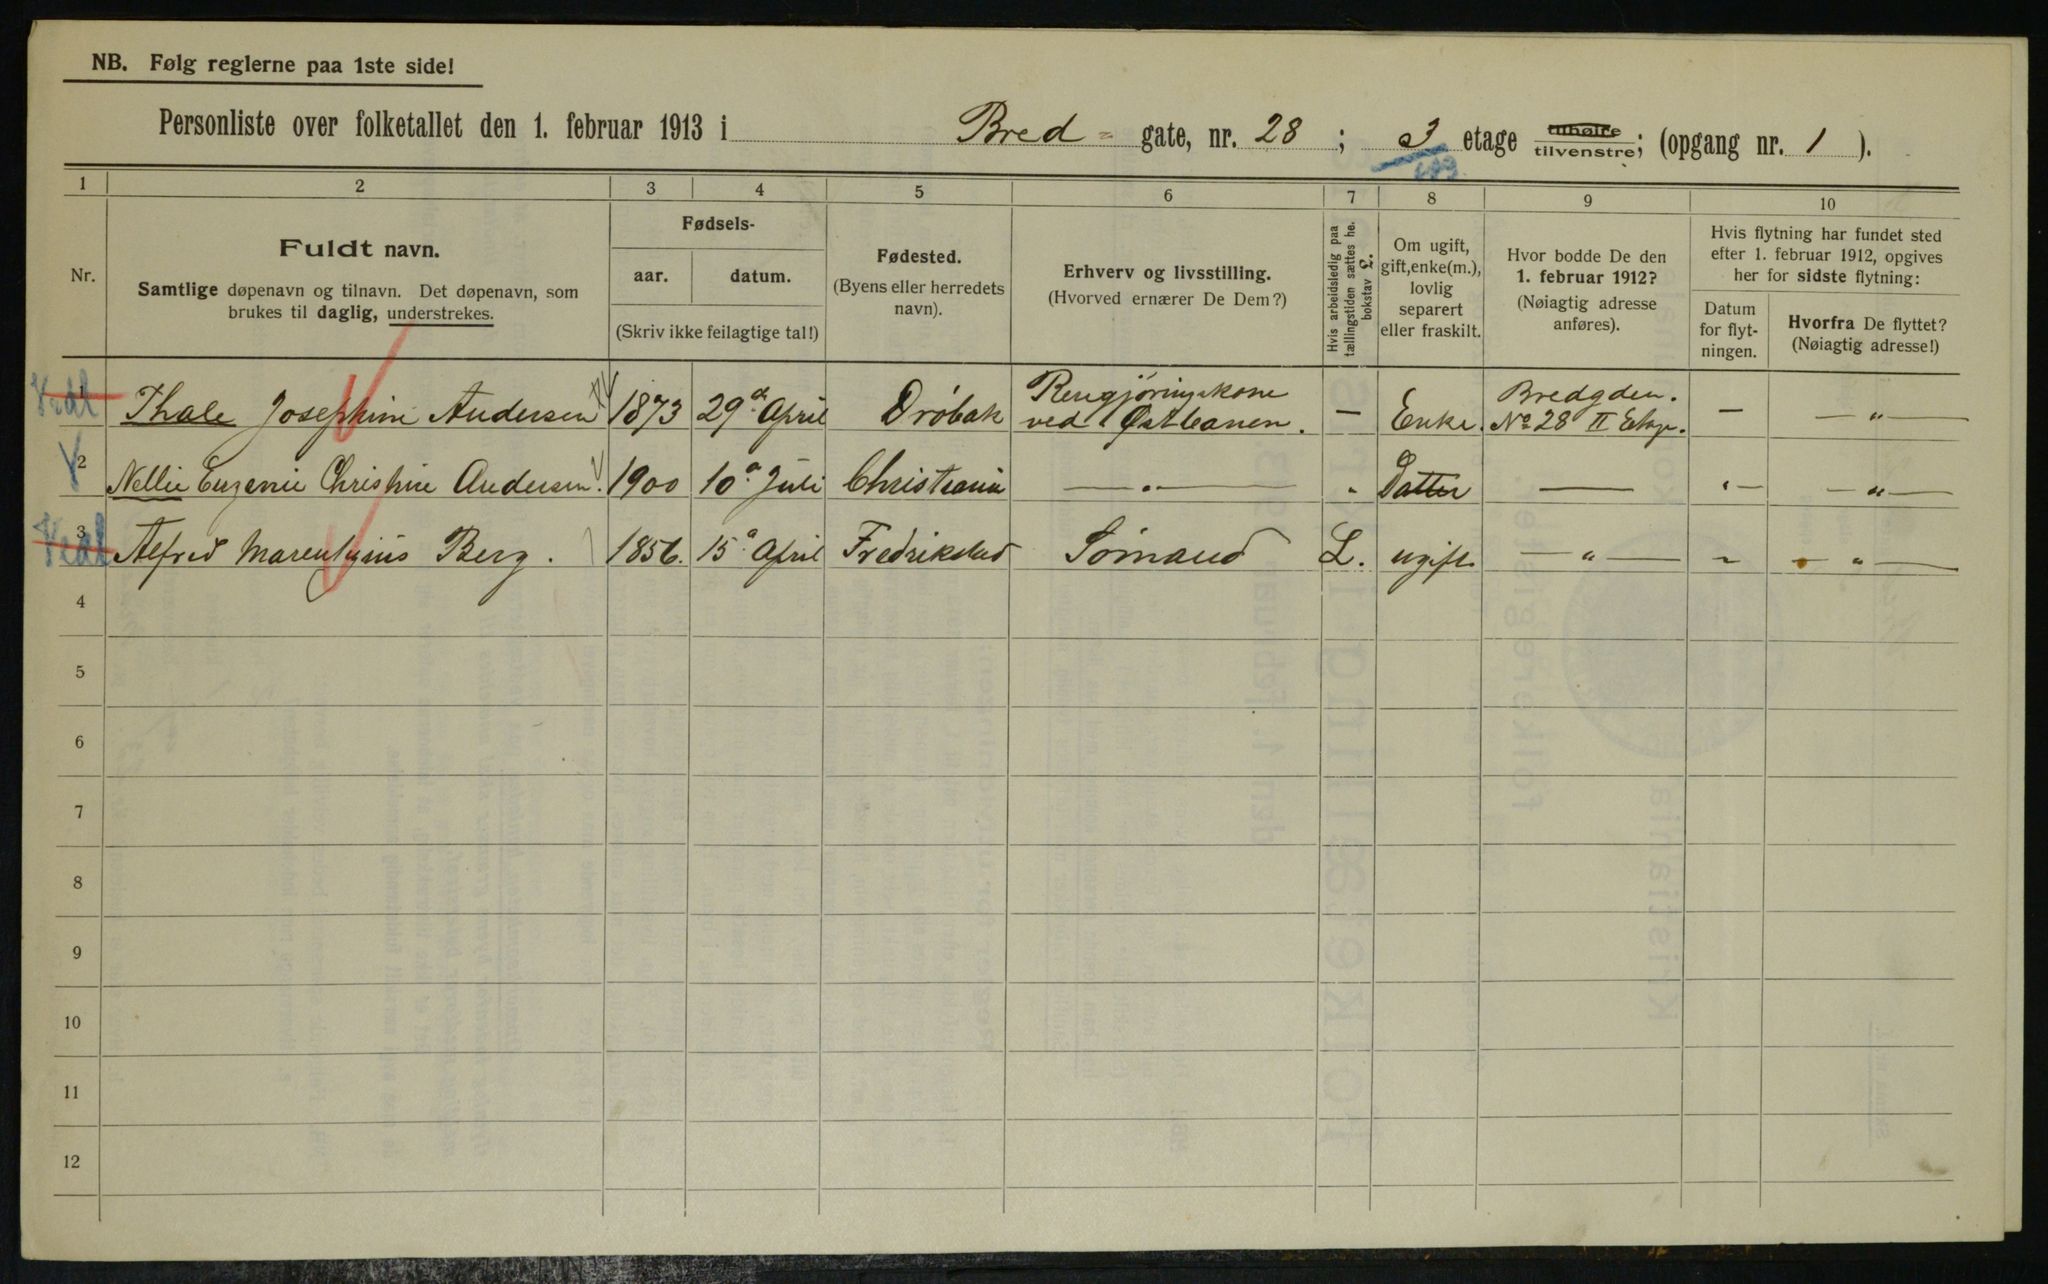 NB. Følg reglerne paa 1ste side!
Personliste over folketallet den 1. februar 1913 i Bred - gate, nr. 28 ; 3 etage tilhøire tilvenstre; (opgang nr. 1 ).
1 2 3 4 5 6 7 8 9 10
Nr.
Fuldt navn.
Samtlige døpenavn og tilnavn. Det døpenavn, som
brukes til daglig, understrekes.
Fødsels-
aar. datum.
(Skriv ikke feilagtige tal!)
Fødested.
(Byens eller herredets
navn).
Erhverv og livsstilling.
(Hvorved ernærer De Dem?)
Hvis arbeidsledig paa
tællingstiden sættes her
bokstav L.
Om ugift,
gift, enke(m.),
lovlig
separert
eller fraskilt.
Hvor bodde De den
1. februar 1912?
(Nøiagtig adresse
anføres).
Hvis flytning har fundet sted
efter 1. februar 1912, opgives
her for sidste flytning:
Datum
for flyt-
ningen.
Hvorfra De flyttet?
(Nøiagtig adresse!)
1 Thale Josephine Andersen 1873 29de April Drøbak Rengjøringskone ved Østbanen. — Enke. Bredgden. No 28 II Etage. — — „ —
2 Nellie Eugenie Christine Andersen. 1900 10de Juli Christiania — „ — „ Datter — „ — „ —
3 Alfred Marentzius Berg. 1856. 15de April Fredrikstad Sømand L. ugift — „ — „ — „ —
4
5
6
7
8
9
10
11
12